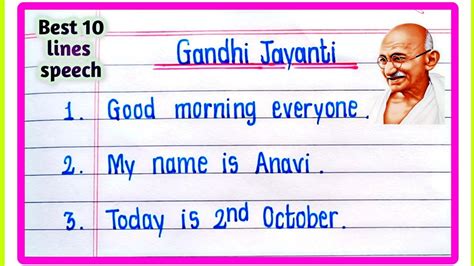 Best 10
lines
speech
Gandhi Jayanti
1. Good morning everyone.
2. My name is Anavi.
3. Today is 2nd October.